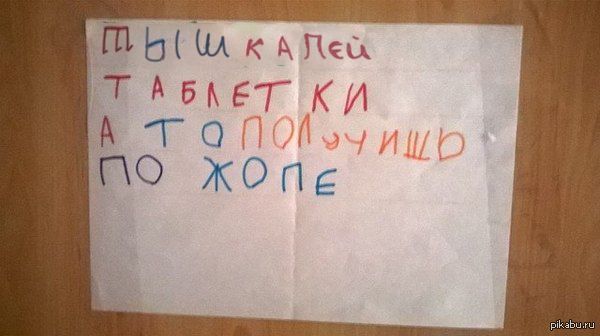 МЫШКА ПЕЙ
ТАБЛЕТКИ
А ТО ПОЛУЧИШЬ
ПО ЖОПЕ
pikabu.ru